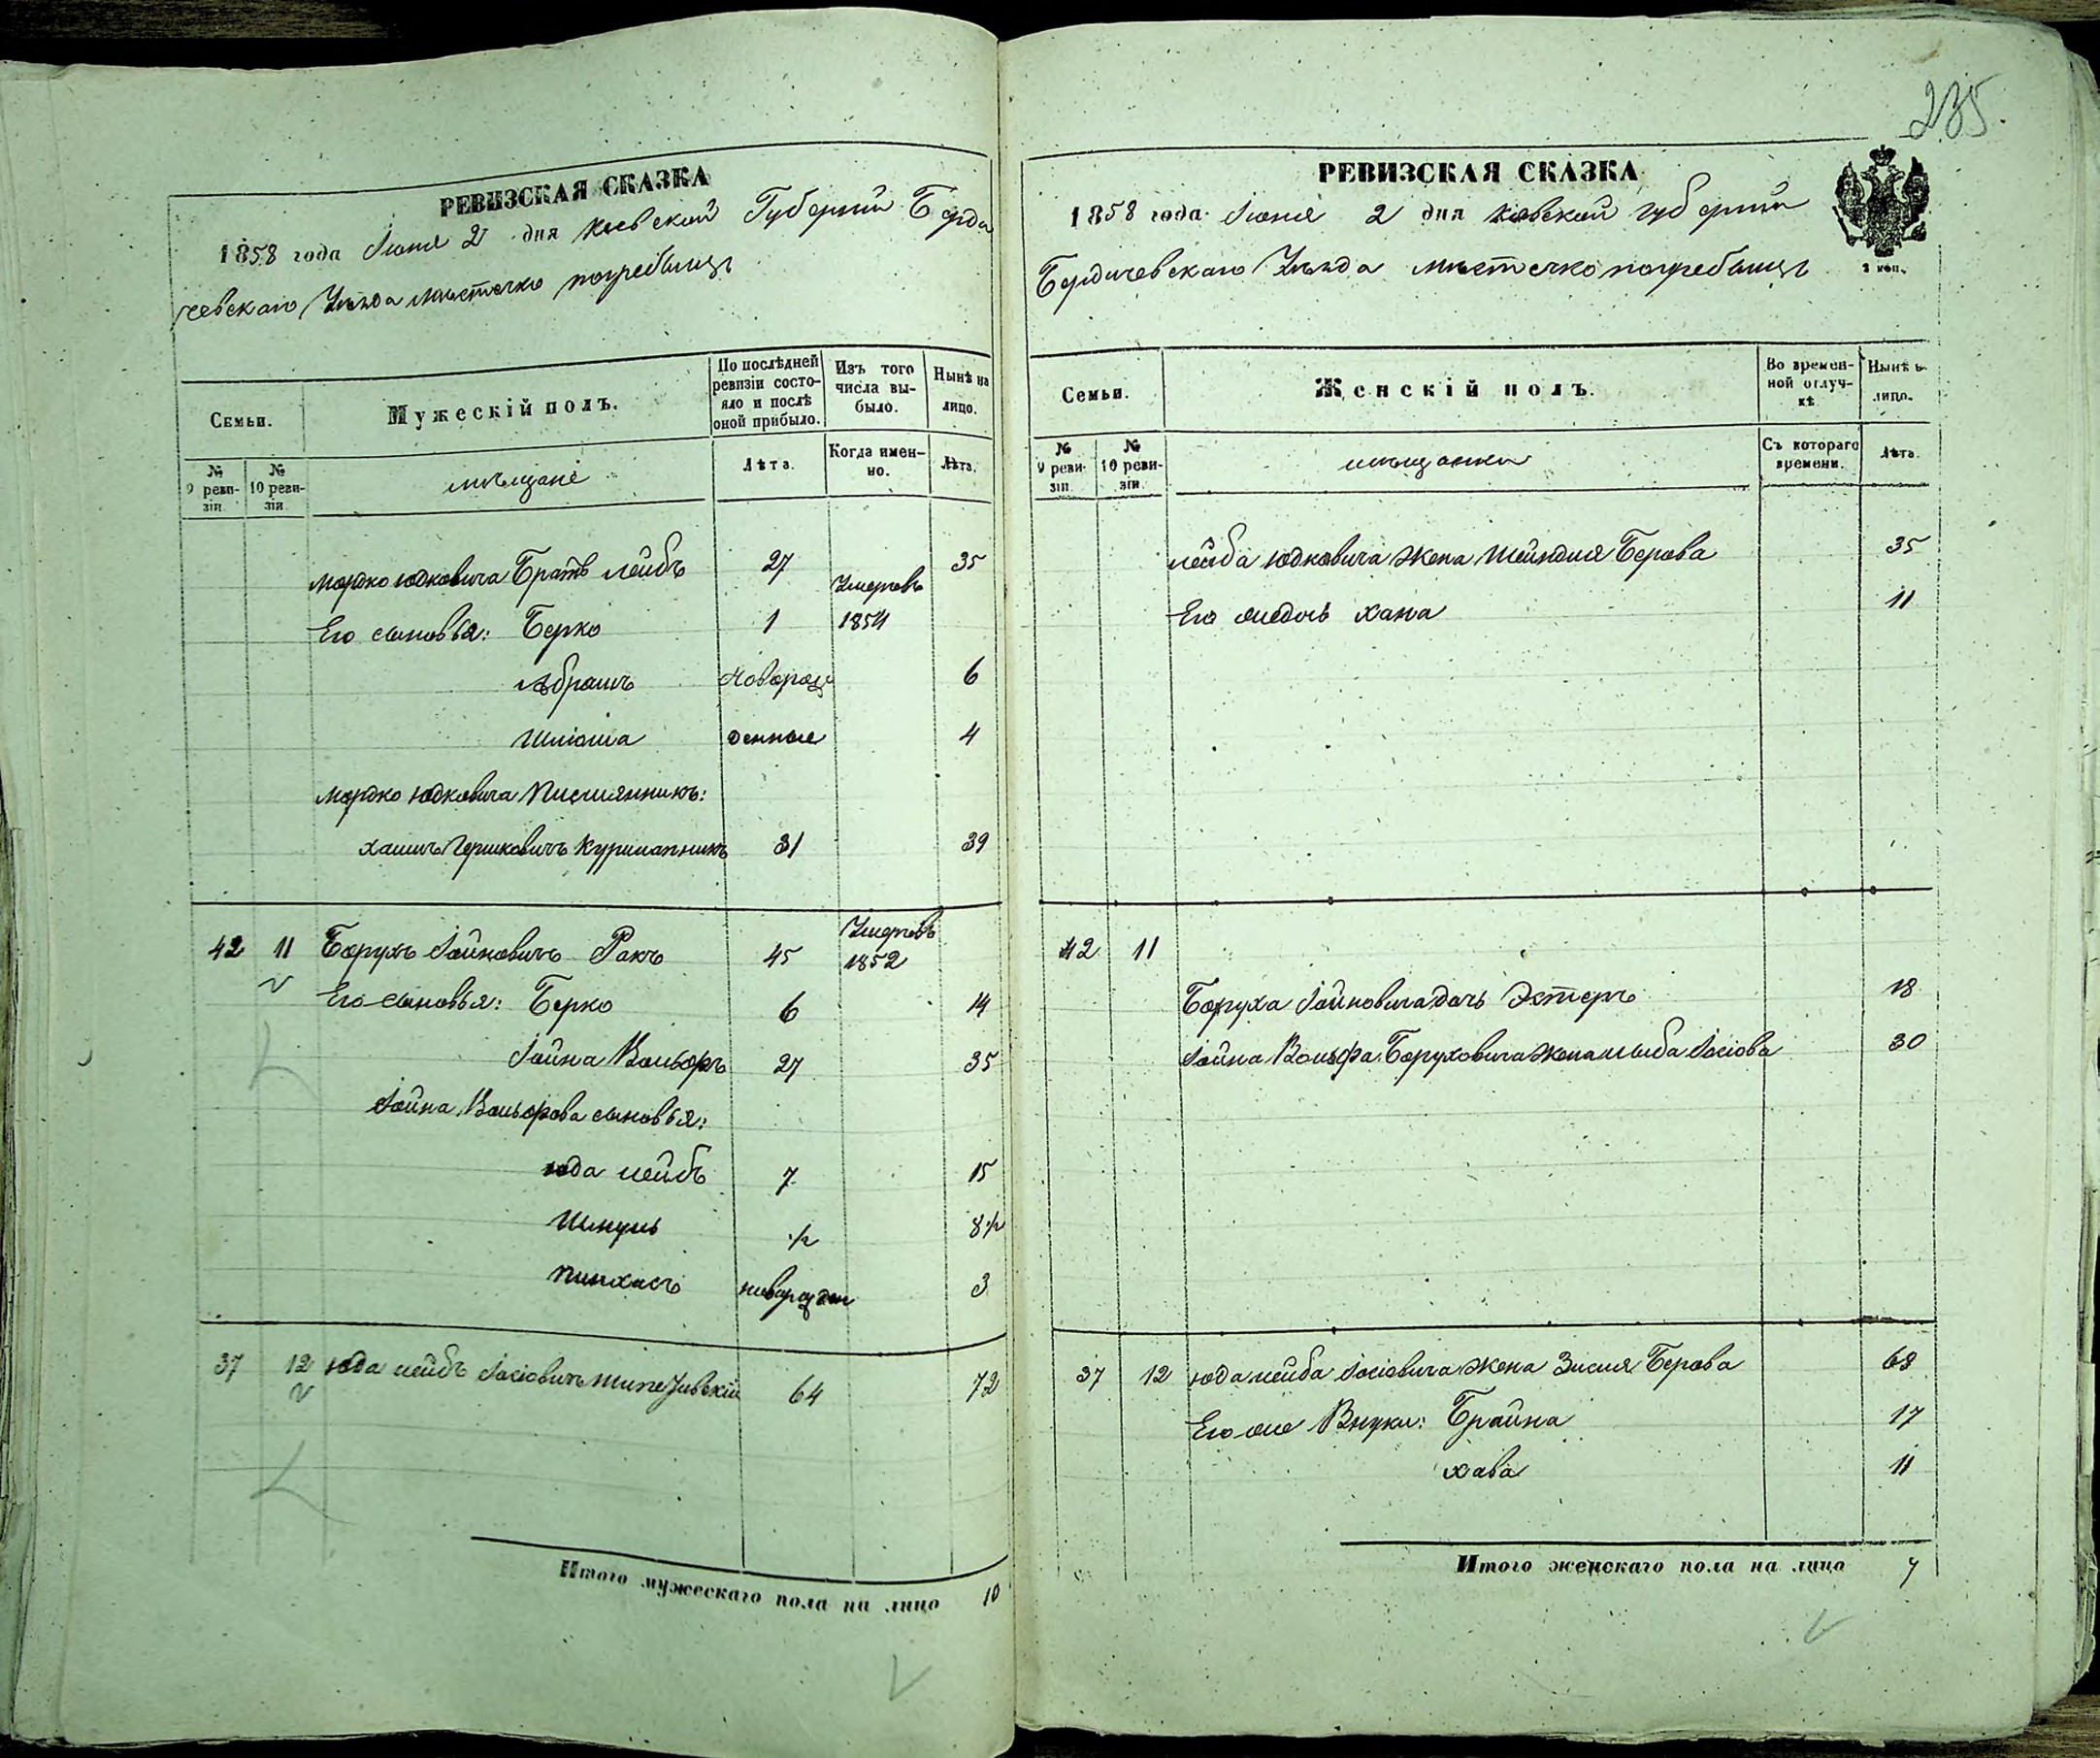 235.
РЕВИЗСКАЯ СКАЗКА
1858 года Июня 2 дня Киевской Губернии Берди
чевскаго Уѣзда мѣстечко погребищъ
Семьи.
Мужескій полъ.
По послѣдней ревизіи состояло и послѣ оной прибыло.
Изъ того числа выбыло.
Нынѣ на лицо.
№ 9 ревизіи
№ 10 ревизіи
мѣщане
Лѣта.
Когда именно.
Лѣта.
Мордко Юдковича Братъ лейбъ 27 35
Его сыновья: Берко 1 Умеръ 1854
Абрамъ Новорож 6
Шліома денные 4
Мордко Юдковича племянникъ:
хаимъ Гершковичъ 31 39
42 11 Борухъ Іойновичъ Ракъ 45 Умеръ 1852
Его сыновья: Берко 6 14
Іойна Вольфъ 27 35
Іойна Вольфова сыновья:
юда лейбъ 7 15
Шмуль ½ 8½
пинхасъ новорожден 3
37 12 юда лейбъ Іосіовичъ 64 72
Итого мужескаго пола на лицо 10
РЕВИЗСКАЯ СКАЗКА
1858 года Июня 2 дня Киевской губерніи
Бердичевскаго Уѣзда мѣстечко погребищъ
3 коп.
Семьи.
Женскій полъ.
Во временной отлучкѣ
Нынѣ на лицо.
№ 9 ревизіи
№ 10 ревизіи
мѣщанки
Съ котораго времени.
Лѣта
лейба Юдковича жена Шейндля Берова 35
Его же дочь хана 11
42 11
Боруха Іойновича дочь Эстеръ 18
Іойна Вольфа Боруховича жена Іосіова 30
37 12 юда лейба Іосіовича жена Зисля Берова 68
Его же Внуки: Брайна 17
хава 11
Итого женскаго пола на лицо 7